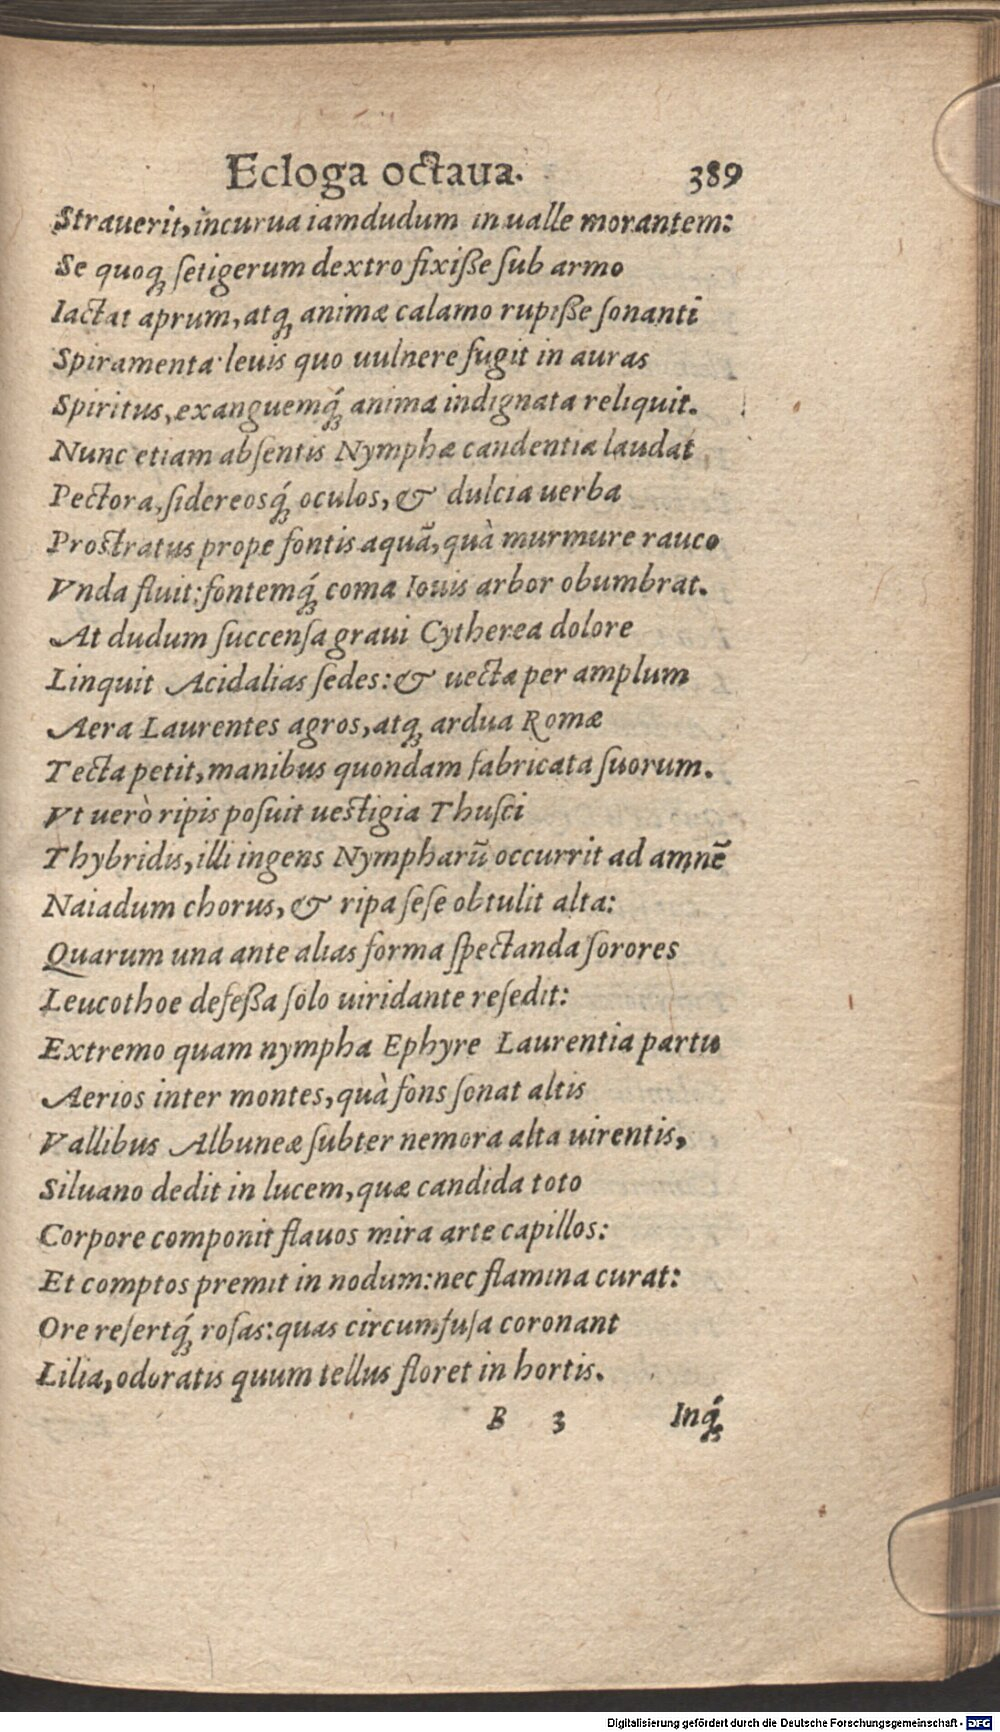 Ecloga octaua. 389
Strauerit, incurua iamdudum in ualle morantem:
Se quoqꝫ ſetigerum dextro fixiſſe ſub armo
Iactat aprum, atqꝫ animæ calamo rupiſſe ſonanti
Spiramenta: leuis quo uulnere fugit in auras
Spiritus, exanguemq́ꝫ anima indignata reliquit.
Nunc etiam abſentis Nymphæ candentia laudat
Pectora, ſidereosq́ꝫ oculos, & dulcia uerba
Proſtratus prope fontis aquã, quà murmure rauco
Vnda fluit: fontemq́ꝫ coma Iouis arbor obumbrat.
At dudum ſuccenſa graui Cytherea dolore
Linquit Acidalias ſedes: & uecta per amplum
Aera Laurentes agros, atqꝫ ardua Romæ
Tecta petit, manibus quondam fabricata ſuorum.
Vt uerò ripis poſuit ueſtigia Thuſci
Thybridis, illi ingens Nympharũ occurrit ad amnẽ
Naiadum chorus, & ripa ſeſe obtulit alta:
Quarum una ante alias forma ſpectanda ſorores
Leucothoe defeſſa ſolo uiridante reſedit:
Extremo quam nympha Ephyre Laurentia partu
Aerios inter montes, quà fons ſonat altis
Vallibus Albuneæ ſubter nemora alta uirentis,
Siluano dedit in lucem, quæ candida toto
Corpore componit flauos mira arte capillos:
Et comptos premit in nodum: nec flamina curat:
Ore refertq́ꝫ roſas: quas circumfuſa coronant
Lilia, odoratis quum tellus floret in hortis.
B 3 Inq́ꝫ
Digitalisierung gefördert durch die Deutsche Forschungsgemeinschaft - DFG